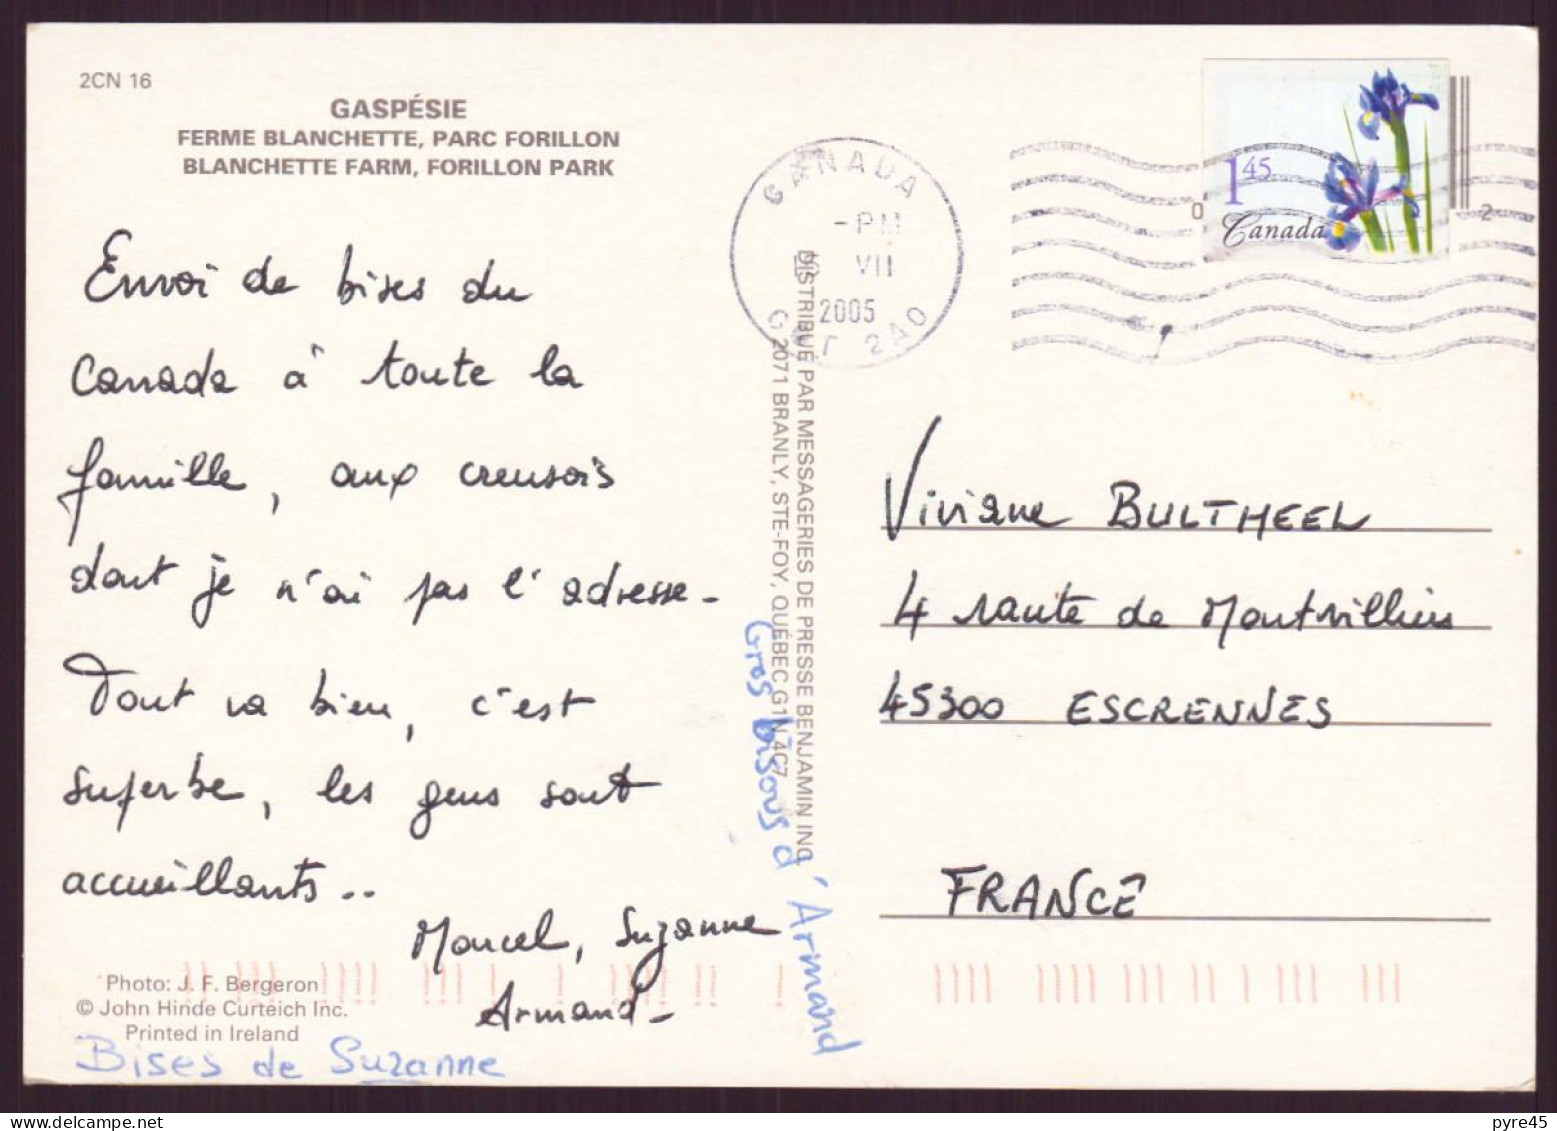 2CN 16
GASPÉSIE
FERME BLANCHETTE, PARC FORILLON
BLANCHETTE FARM, FORILLON PARK
Envoi de bises du
Canada à toute la
famille, aux creusois
dont je n'ai pas l'adresse_
Tout va bien, c'est
superbe, les gens sont
accueillants..
Marcel, Suzanne
Armand_
Photo: J. F. Bergeron
© John Hinde Curteich Inc.
Printed in Ireland
Bises de Suzanne
Gros bisous d'Armand
DISTRIBUÉ PAR MESSAGERIES DE PRESSE BENJAMIN INC
2071 BRANLY, STE-FOY, QUÉBEC G1N 4C7
CANADA
-PM
VII
2005
2A0
1.45
Canada
0
2
Viviane BULTHEEL
4 route de Montvilliers
45300 ESCRENNES
FRANCE
pyre45